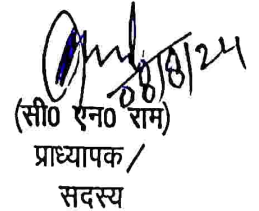 08/8/24
(सी0 एन0 राम)
प्राध्यापक /
सदस्य